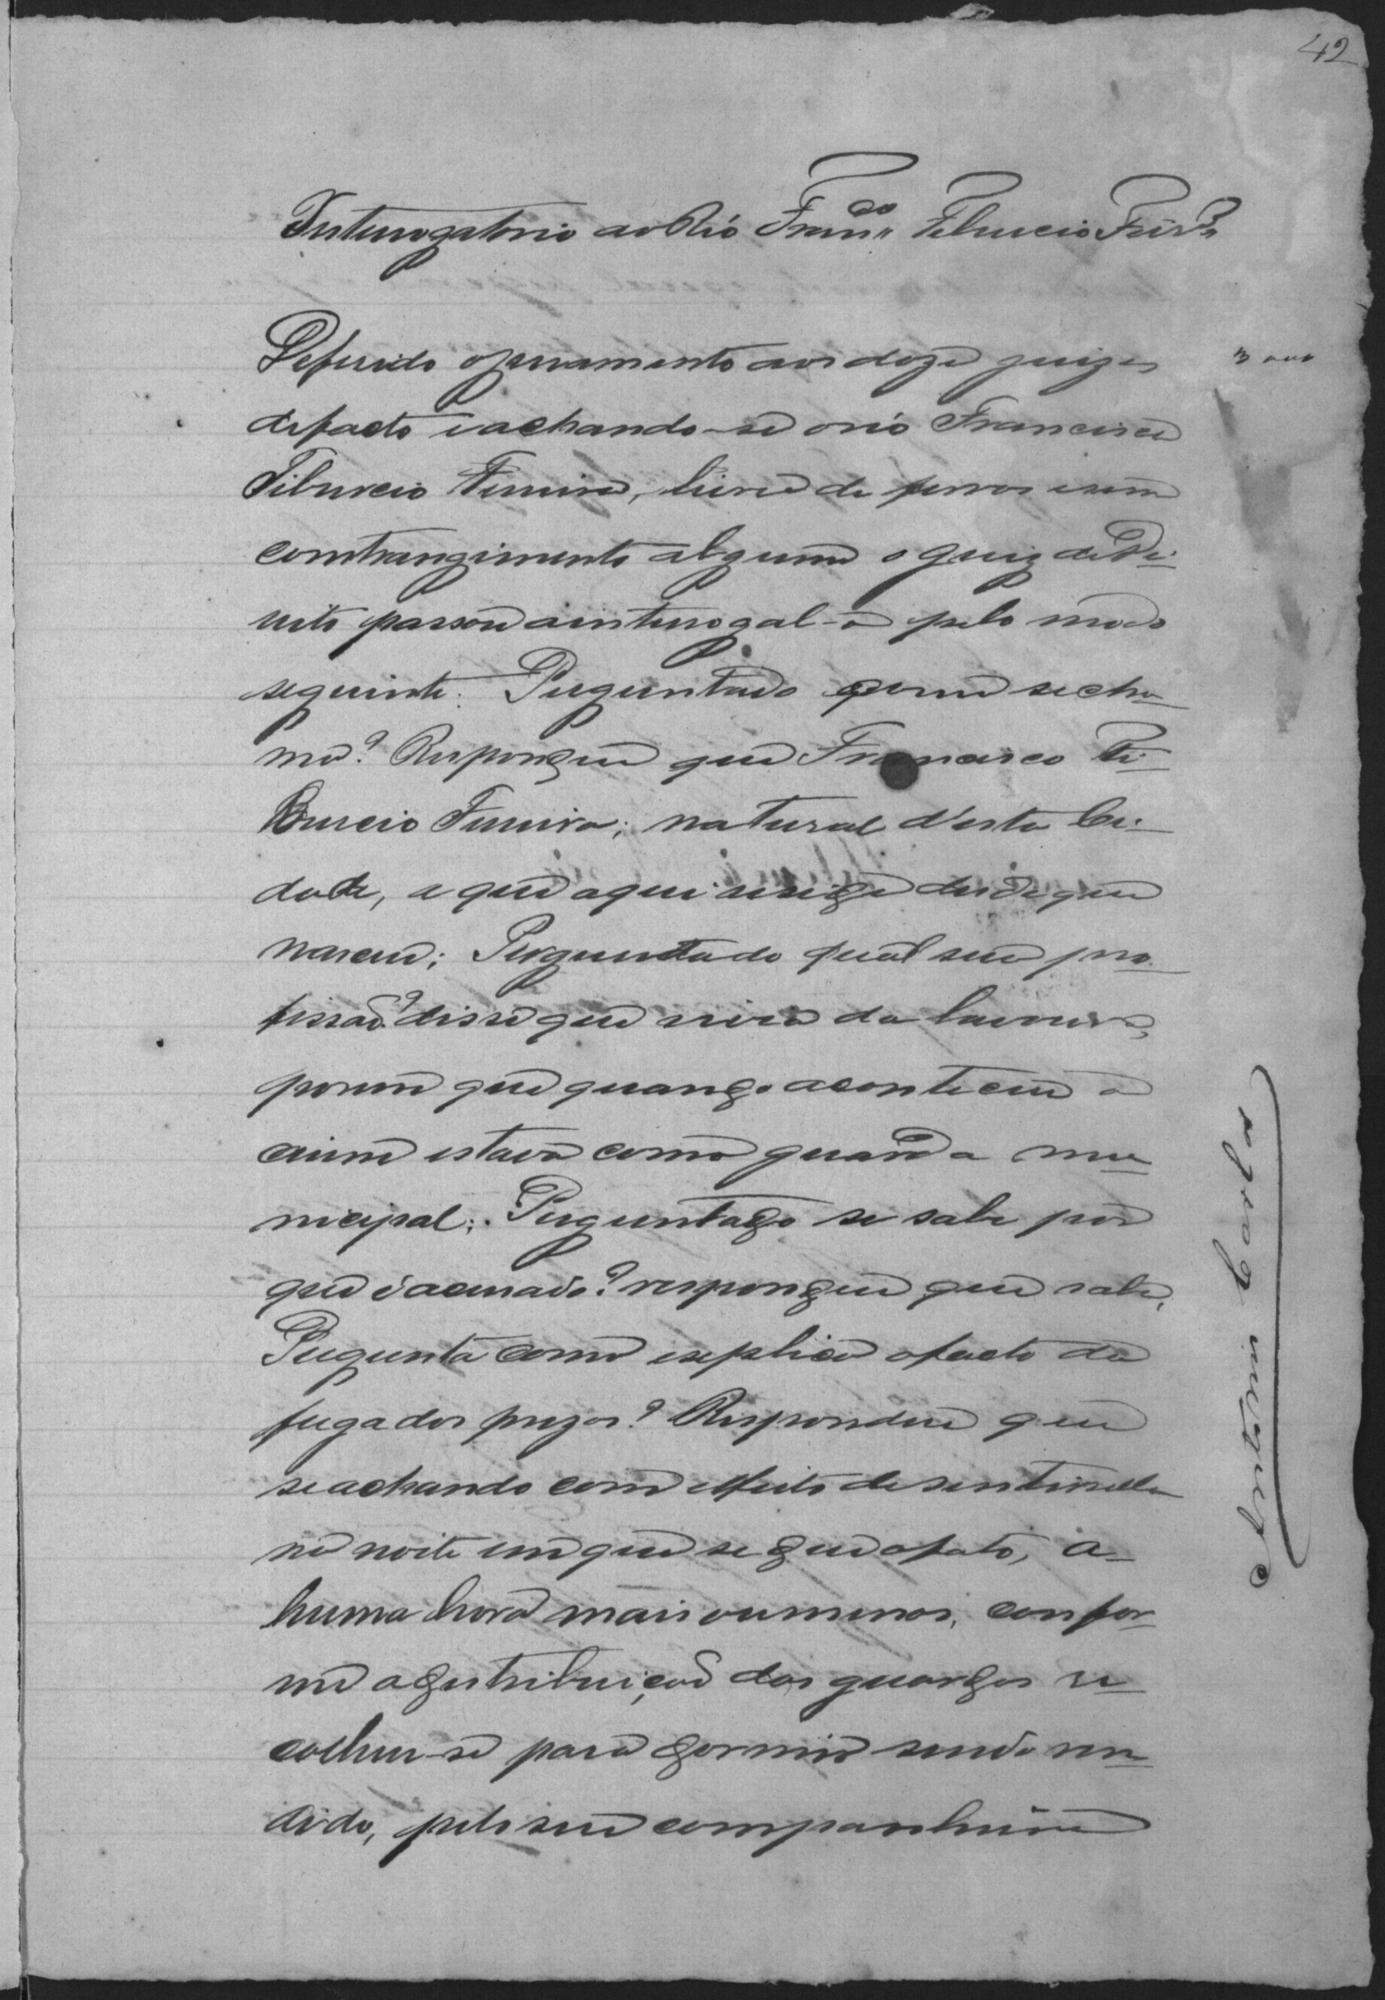 42
Interrogatorio ao Réo Fran.co Tiburcio Ferr.a
Deferido o juramento aos doze juizes
3 000
de facto e achando-se o réo Francisco
Tiburcio Ferreira, livre de ferros e sem
constrangimento algum o Juiz de Di-
reito passou a interrogal-o pelo modo
seguinte: Perguntado como se cha-
ma? Respondeu que Francisco Ti-
burcio Ferreira; natural d'esta Ci-
dade, e que aqui reside desde que
nasceu; Perguntado qual sua pro-
fissão? disse que vive da lavoura,
porem que quando aconteceu o
crime estava como guarda mu-
nicipal; Perguntado se sabe por
que é acusado? respondeu que sabe,
Pergunta como explica o facto da
fuga dos prezos? Respondeu que
se achando com effeito de sentinella
na noite em que se deu o fato, a-
huma hora mais ou menos, confor-
me a destribuição dos guardas re-
colheu-se para dormir sendo ren-
dido, pelo seu companheiro
Antonio Carlos